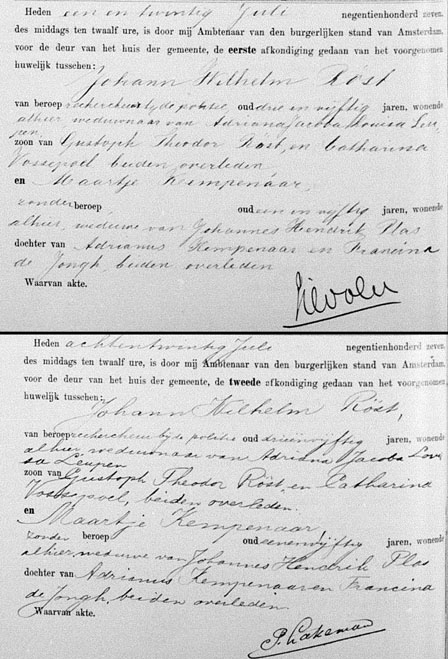 Heden een en twintig Juli negentienhonderd zeven,
des middags ten twaalf ure, is door mij Ambtenaar van den burgerlijken stand van Amsterdam,
voor de deur van het huis der gemeente, de eerste afkondiging gedaan van het voorgenomen
huwelijk tusschen:
Johann Wilhelm Röst
van beroep rechercheur bij de politie oud drie en vijftig jaren, wonende
alhier weduwnaar van Adriana Jacoba Louisa Leu
pen,
zoon van Gustoph Theodor Röst, en Catharina
Vossepoel beiden overleden
en Maartje Kempenaar,
zonder beroep oud een en vijftig jaren, wonende
alhier, weduwe van Johannes Hendrik Plas
dochter van Adrianus Kempenaar en Francina
de Jongh, beiden overleden
Waarvan akte.
Heden achtentwintig Juli negentienhonderd zeven,
des middags ten twaalf ure, is door mij Ambtenaar van den burgerlijken stand van Amsterdam,
voor de deur van het huis der gemeente, de tweede afkondiging gedaan van het voorgenomen
huwelijk tusschen:
Johann Wilhelm Röst,
van beroep rechercheur bij de politie oud drieënvijftig jaren, wonende
alhier, weduwnaar van Adriana Jacoba Loui
sa Leupen
zoon van Gustoph Theodor Röst, en Catharina
Vossepoel, beiden overleden.
en
Maartje Kempenaar,
zonder beroep oud eenenvijftig jaren, wonende
alhier, weduwe van Johannes Hendrik Plas
dochter van Adrianus Kempenaar en Francina
de Jongh, beiden overleden.
Waarvan akte.
P. Lakeman